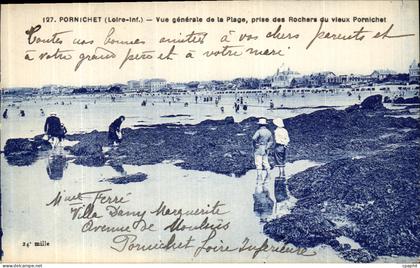 127. PORNICHET (Loire-Inf.) — Vue générale de la Plage, prise des Rochers du vieux Pornichet
Toutes nos bonnes amitiés à vos chers parents et
à votre grand père et à votre mari
Mme Ferré
Villa Dany Marguerite
Avenue de Moulins
Pornichet Loire Inférieure
24e mille